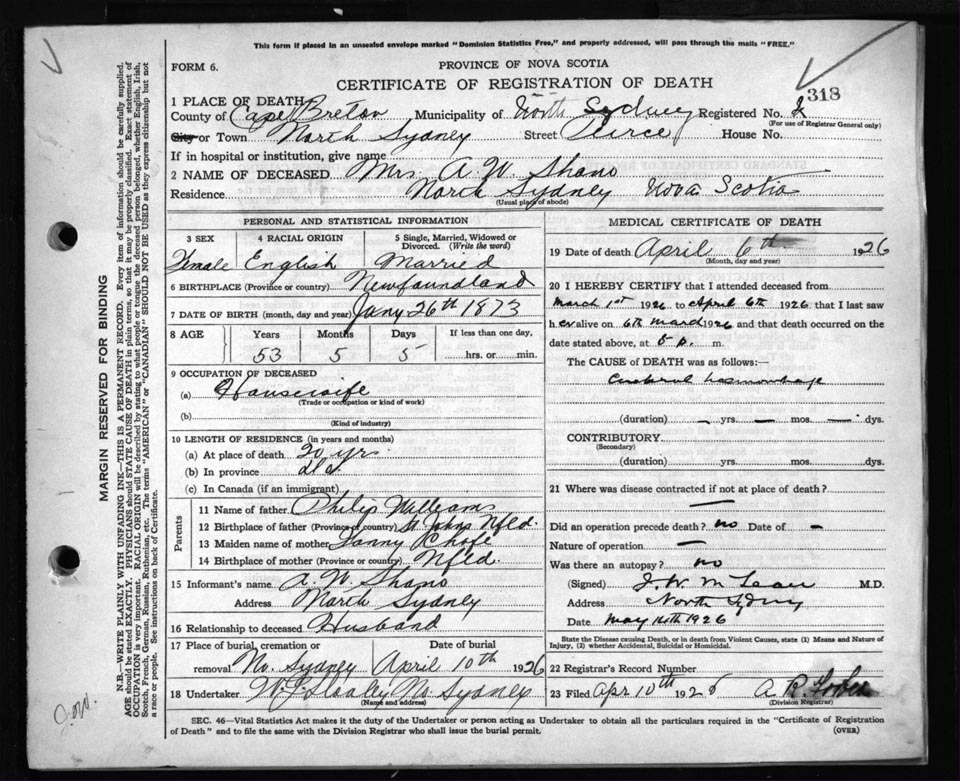 This form if placed in an unsealed envelope marked "Dominion Statistics Free," and properly addressed, will pass through the mails "FREE."
FORM 6.
PROVINCE OF NOVA SCOTIA
CERTIFICATE OF REGISTRATION OF DEATH
318
1 PLACE OF DEATH
County of Cape Breton Municipality of North Sydney Registered No.
(For use of Registrar General only)
City or Town North Sydney Street Peirce House No.
If in hospital or institution, give name
2 NAME OF DECEASED Mrs A. W. Shano
Residence North Sydney Nova Scotia
(Usual place of abode)
PERSONAL AND STATISTICAL INFORMATION
3 SEX 4 RACIAL ORIGIN 5 Single, Married, Widowed or Divorced. (Write the word)
Female English Married
6 BIRTHPLACE (Province or country) Newfoundland
7 DATE OF BIRTH (month, day and year) Jany 26th 1873
8 AGE Years Months Days If less than one day,
53 5 5 hrs. or min.
9 OCCUPATION OF DECEASED
(a) Housewife
(Trade or occupation or kind of work)
(b)
(Kind of industry)
10 LENGTH OF RESIDENCE (in years and months)
(a) At place of death 20 yrs.
(b) In province
(c) In Canada (if an immigrant)
Parents
11 Name of father Philip Williams
12 Birthplace of father (Province or country) St. Johns Nfld.
13 Maiden name of mother Fanny Chafe
14 Birthplace of mother (Province or country) Nfld.
15 Informant's name A. W. Shano
Address North Sydney
16 Relationship to deceased Husband
17 Place of burial, cremation or removal Date of burial
No. Sydney April 10th 1926
18 Undertaker No Sydney
(Name and address)
MEDICAL CERTIFICATE OF DEATH
19 Date of death April 6th 1926
(Month, day and year)
20 I HEREBY CERTIFY that I attended deceased from
March 1st 1926 to April 6th 1926 that I last saw
h er alive on 6th March 1926 and that death occurred on
date stated above, at 5 p. m.
The CAUSE of DEATH was as follows:—
Cerebral haemorrhage
(duration) — yrs. — mos. — dys.
CONTRIBUTORY
(Secondary)
(duration) yrs. mos. dys.
21 Where was disease contracted if not at place of death?
—
Did an operation precede death? no Date of —
Nature of operation —
Was there an autopsy? no
(Signed) J. W. McLean M.D.
Address North Sydney
Date May 14th 1926
State the Disease causing Death, or in death from Violent Causes, state (1) Means and Nature of
Injury, (2) whether Accidental, Suicidal or Homicidal.
22 Registrar's Record Number
23 Filed Apr 10th 1926 A. R. Forbes
(Division Registrar)
SEC. 46—Vital Statistics Act makes it the duty of the Undertaker or person acting as Undertaker to obtain all the particulars required in the "Certificate of Registration
of Death" and to file the same with the Division Registrar who shall issue the burial permit.
(OVER)
MARGIN RESERVED FOR BINDING
N.B.—WRITE PLAINLY WITH UNFADING INK—THIS IS A PERMANENT RECORD. Every item of information should be carefully supplied.
AGE should be stated EXACTLY. PHYSICIANS should STATE CAUSE OF DEATH in plain terms, so that it may be properly classified. Exact statement of
OCCUPATION is very important. RACIAL ORIGIN will be described by stating to what people or tongue the deceased person belonged, whether English, Irish,
Scotch, French, German, Russian, Ruthenian, etc. The terms "AMERICAN" or "CANADIAN" SHOULD NOT BE USED as they express citizenship but not
a race or people. See instructions on back of Certificate.
J.W.